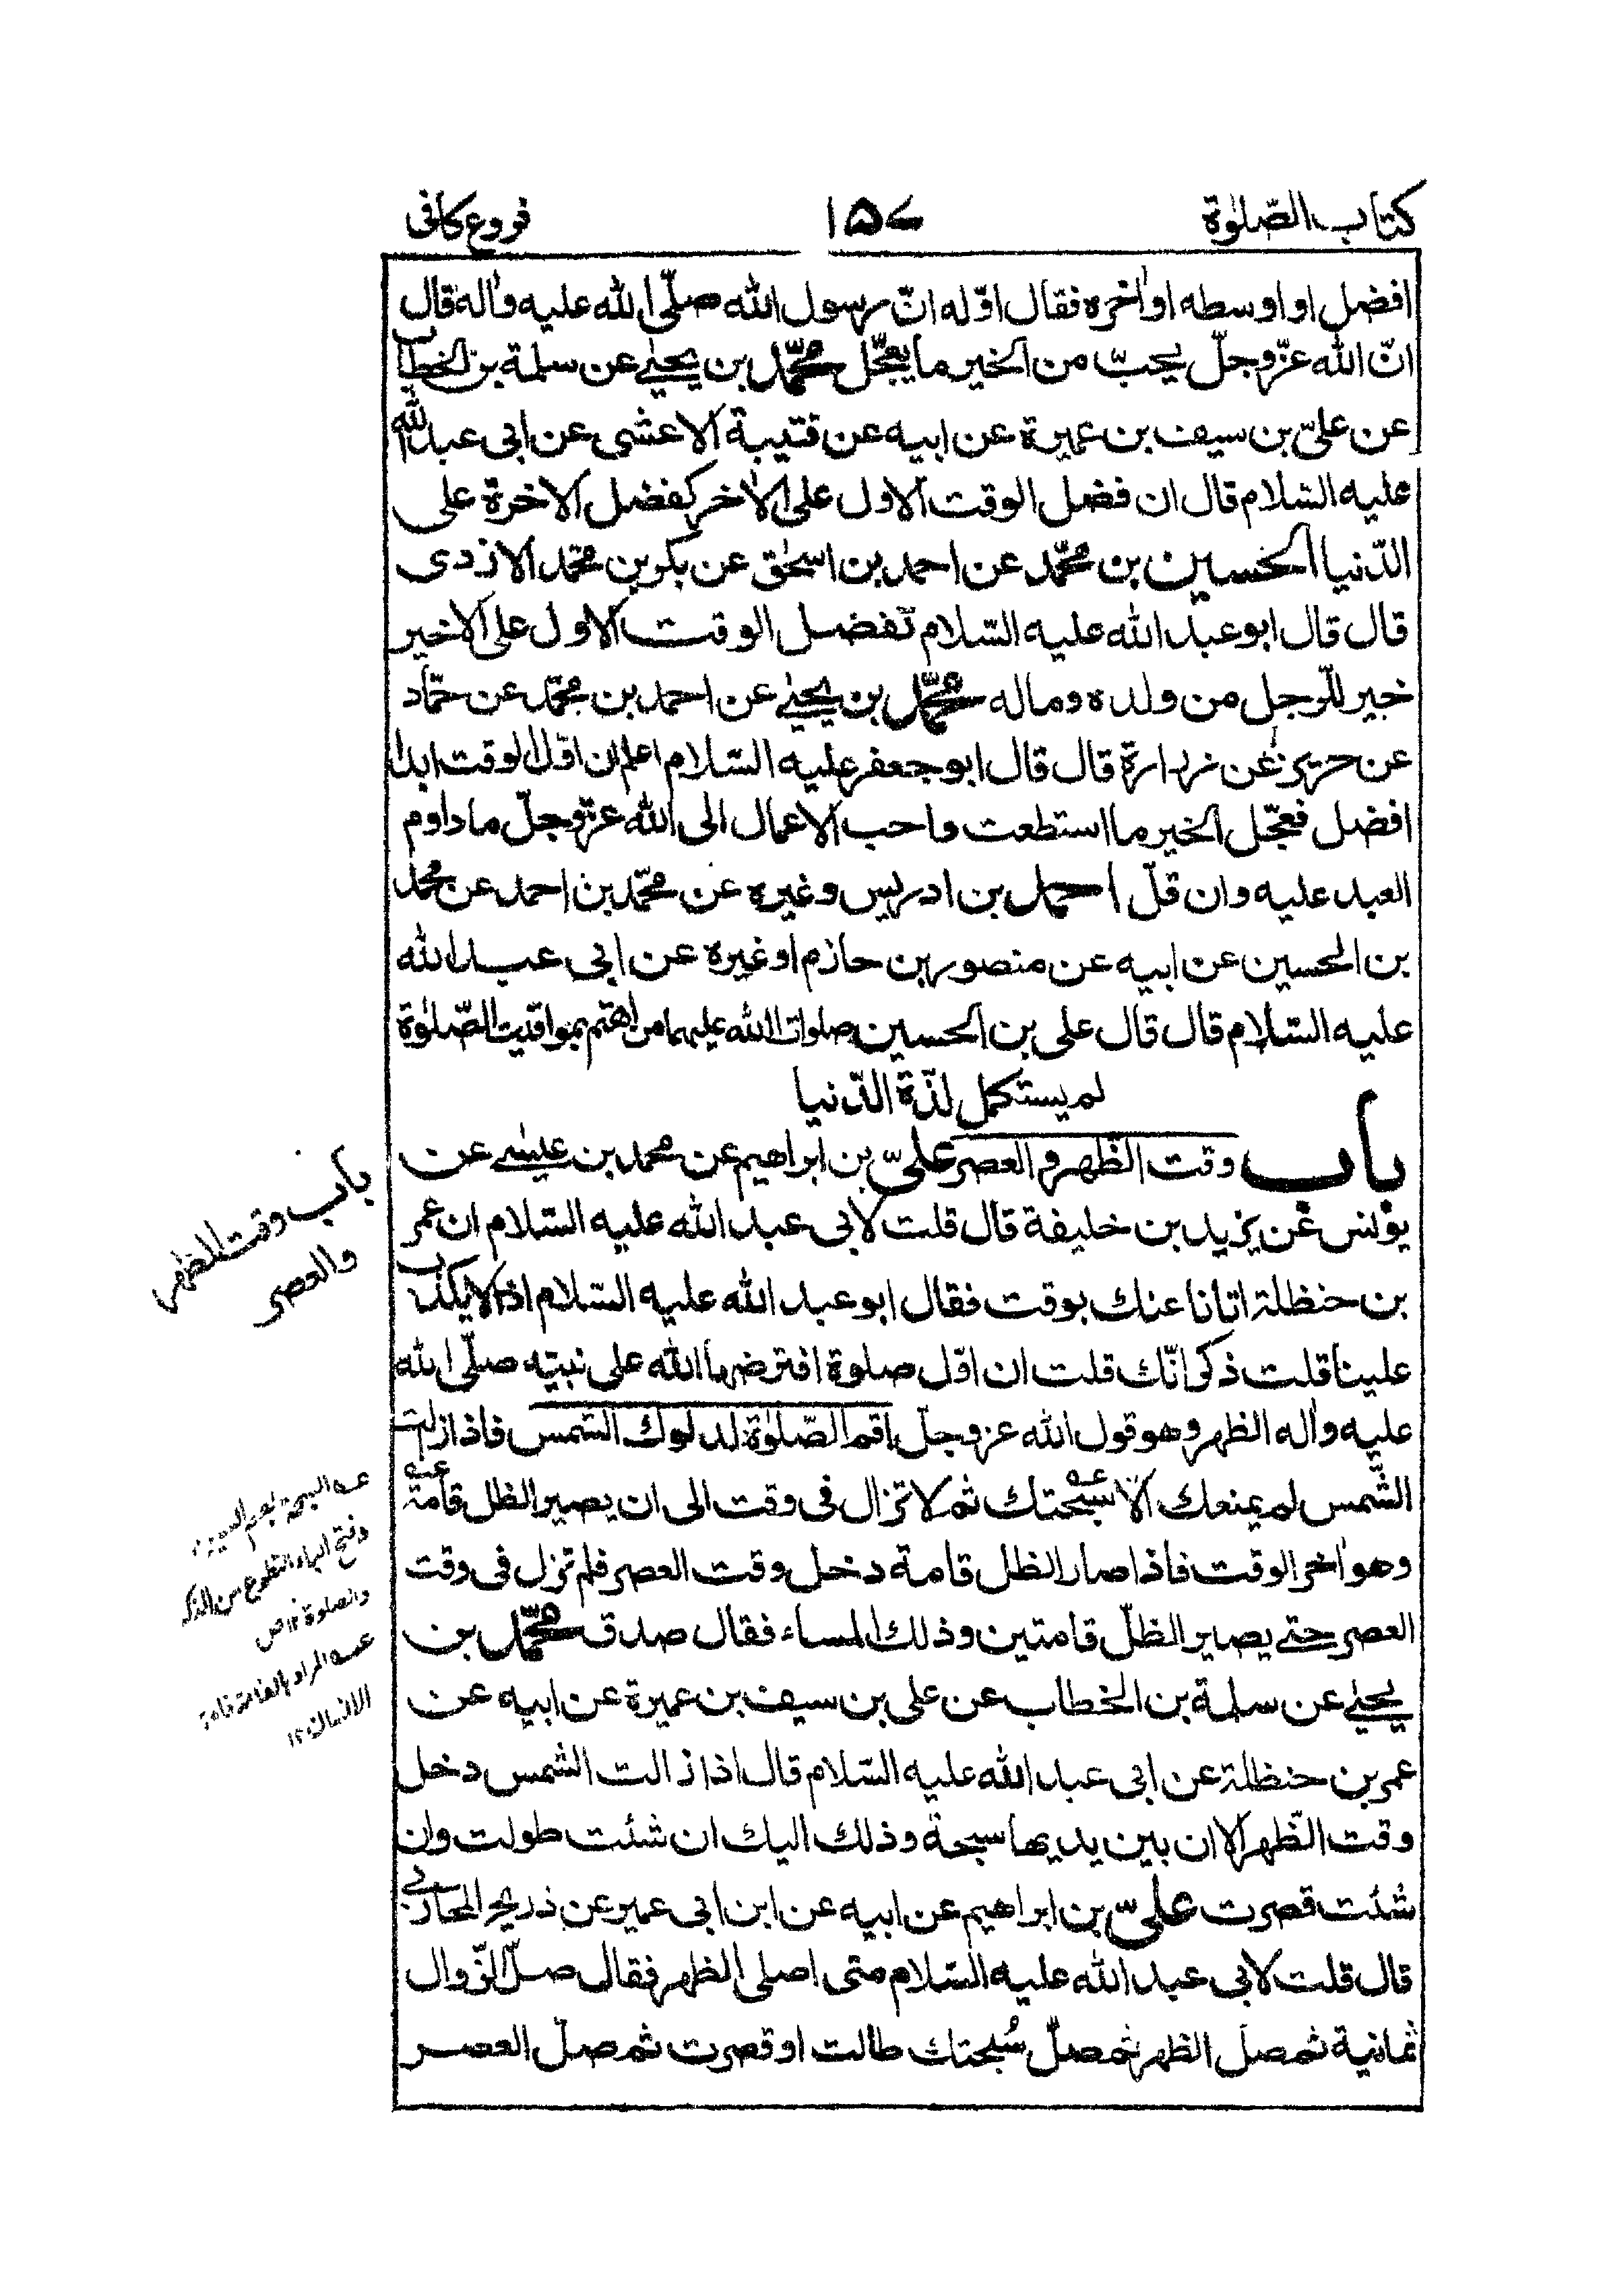 كتاب الصّلوٰة ١٥٧ فروع كافى
افضل او اوسطه او اٰخره فقال اوّله انّ رسول الله صلّى الله عليه واٰله قال
انّ الله عزّ وجلّ يحبّ من الخير ما يعجّل محمّد بن يحيىٰ عن سلمة بن الخطاب
عن علىّ بن سيف بن عميرة عن ابيه عن قتيبة الاعشى عن ابى عبد الله
عليه السّلام قال ان فضل الوقت الاول على الاٰخر كفضل الاخرة على
الدّنيا الحسين بن محمّد عن احمد بن اسحٰق عن بكر بن محمّد الازدى
قال قال ابو عبد الله عليه السّلام لفضل الوقت الاول على الاخير
خير للرّجل من ولده وماله محمّد بن يحيىٰ عن احمد بن محمّد عن حمّاد
عن حريز عن زرارة قال قال ابو جعفر عليه السّلام اعلم ان اوّل الوقت ابدا
افضل فعجّل الخير ما استطعت واحب الاعمال الى الله عزّ وجلّ ما داوم
العبد عليه وان قلّ احمد بن ادريس وغيره عن محمّد بن احمد عن محمد
بن الحسين عن ابيه عن منصور بن حازم او غيره عن ابى عبد الله
عليه السّلام قال قال على بن الحسين صلوات الله عليهما من اهتم بمواقيت الصّلوٰة
لم يستكمل لذّة الدّنيا
باب وقت الظّهر والعصر علىّ بن ابراهيم عن محمد بن عيسٰى عن
يونس عن يزيد بن خليفة قال قلت لابى عبد الله عليه السّلام ان عمر
بن حنظلة اتانا عنك بوقت فقال ابو عبد الله عليه السّلام اذا لا يكذب
علينا قلت ذكر انّك قلت ان اوّل صلوة افترضها الله على نبيّه صلّى الله
عليه واٰله الظهر وهو قول الله عز وجلّ اقم الصّلوٰة لدلوك الشمس فاذا زالت
الشّمس لم يمنعك الّا سبحتك ثم لا تزال فى وقت الى ان يصير الظل قامة
وهو اٰخر الوقت فاذا صار الظل قامة دخل وقت العصر فلم تزل فى وقت
العصر حتى يصير الظلّ قامتين وذلك المساء فقال صدق محمّد بن
يحيىٰ عن سلمة بن الخطاب عن على بن سيف بن عميرة عن ابيه عن
عمر بن حنظلة عن ابى عبد الله عليه السّلام قال اذا زالت الشمس دخل
وقت الظّهر الا ان بين يديها سبحة وذلك اليك ان شئت طولت وان
شئت قصرت علىّ بن ابراهيم عن ابيه عن ابن ابى عمير عن ذريح المحاربى
قال قلت لابى عبد الله عليه السّلام متى اصلى الظهر فقال صلّ الزّوال
ثمانية ثم صل الظهر ثم صلّ سُبحتك طالت او قصرت ثم صلّ العصر
باب وقت الظهر
والعصر
عـه السبحة بضم السين
وفتح الباء التطوع من الذكر
والصلوة ص
عـه المراد بالقامة قامة
الانسان ١٢